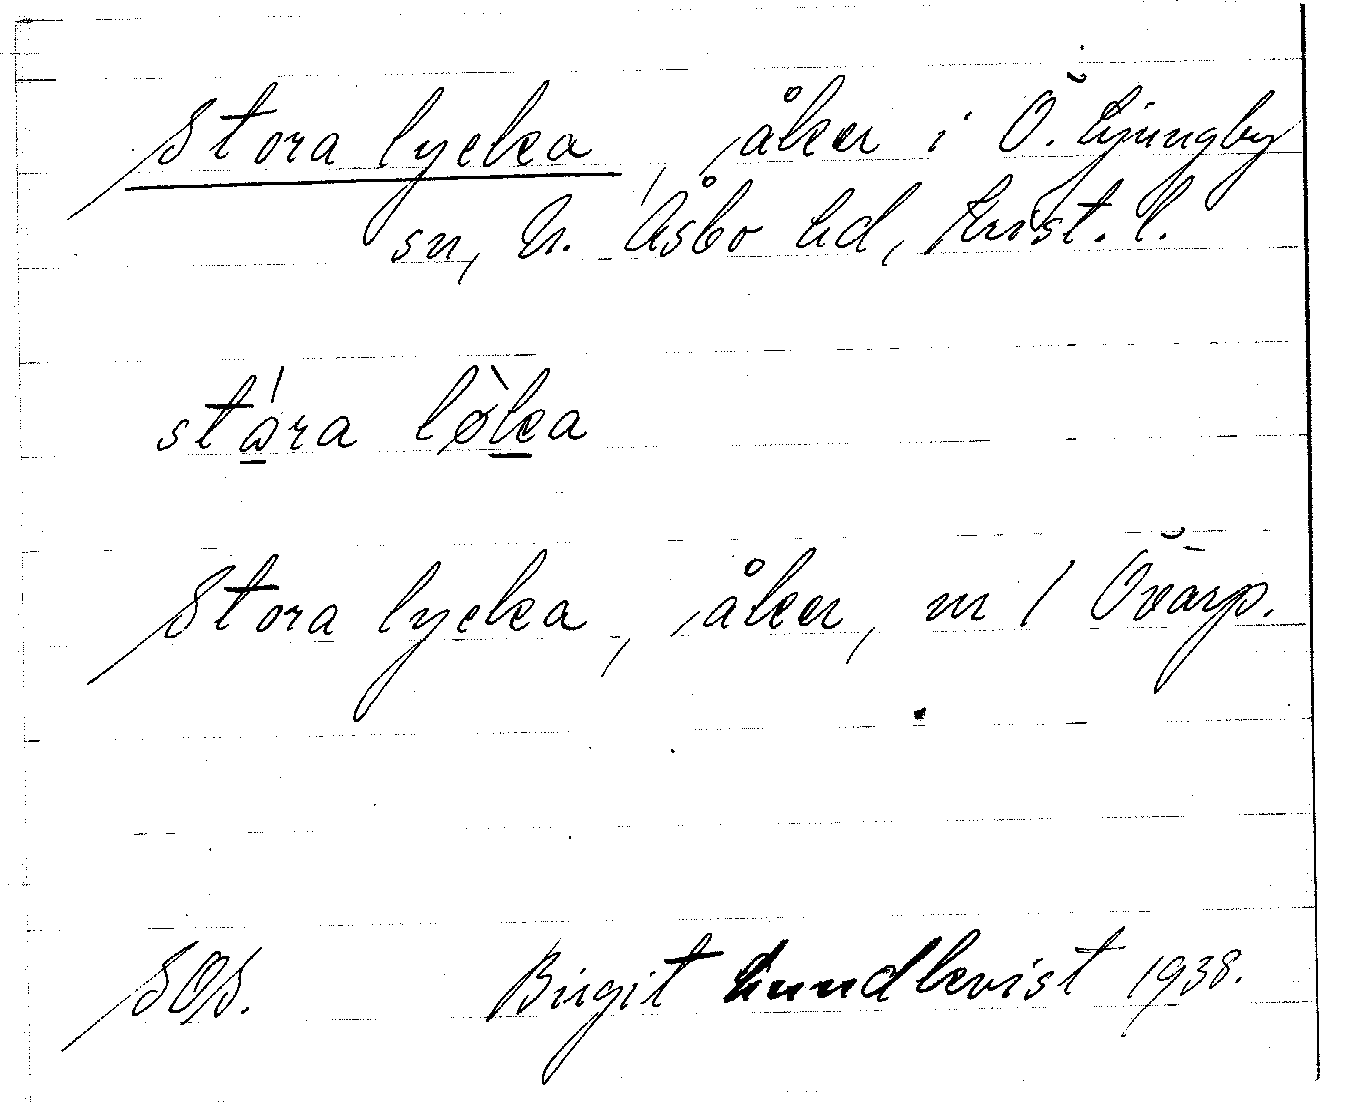 Stora lycka, åker i Ö. Ljungby
sn, N. Åsbo hd, Krist. l.
stǻra lø̀ka
Stora lycka, åker, nr 1 Övarp.
SOS. Birgit Lundkvist 1938.